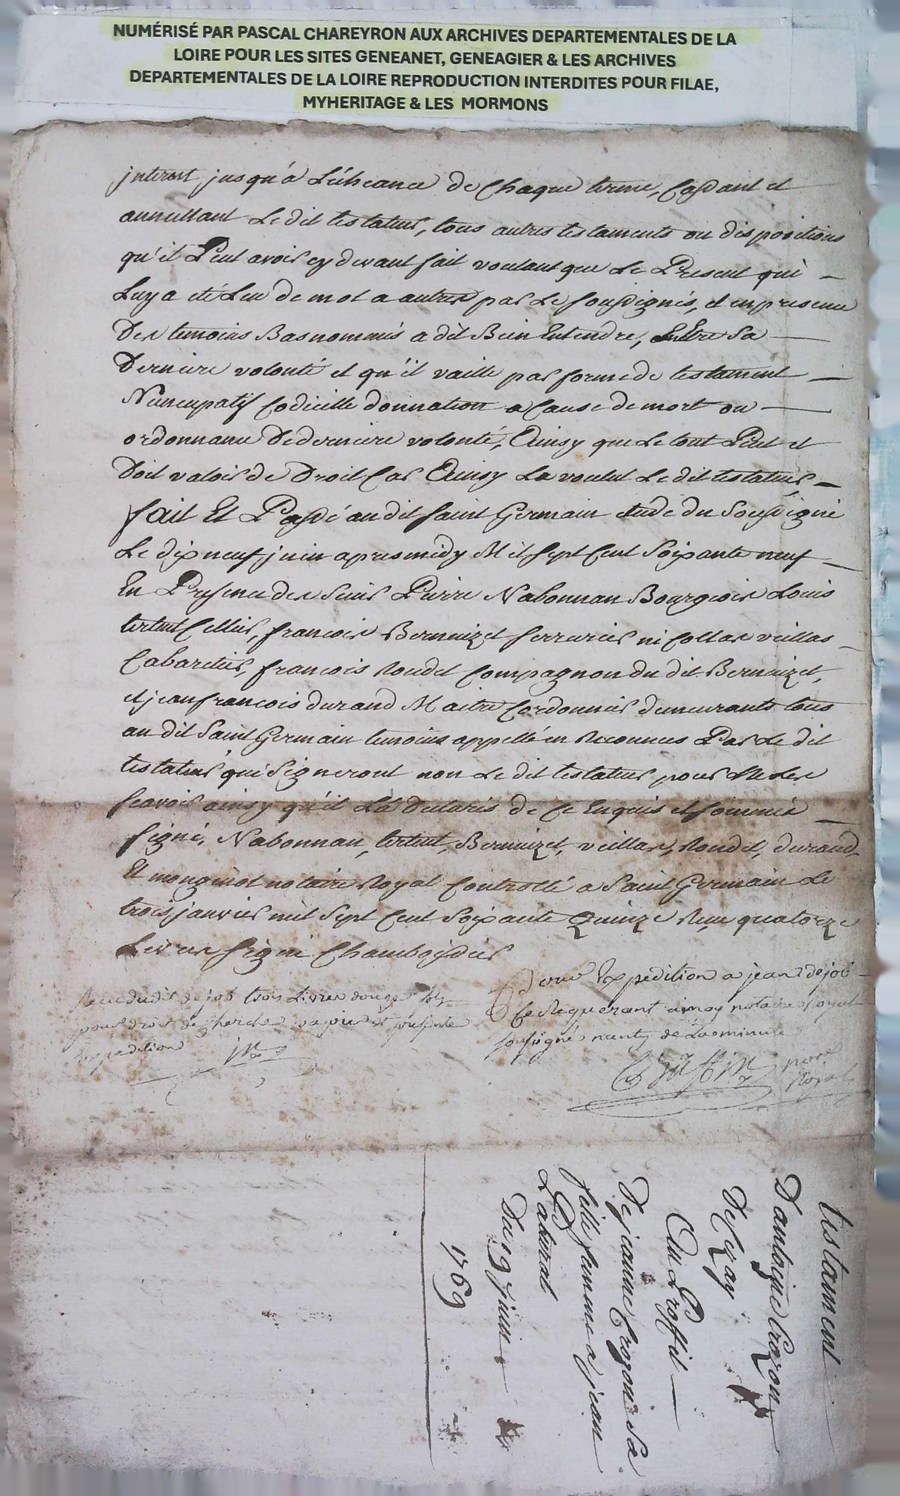 NUMÉRISÉ PAR PASCAL CHAREYRON AUX ARCHIVES DEPARTEMENTALES DE LA
LOIRE POUR LES SITES GENEANET, GENEAGIER & LES ARCHIVES
DEPARTEMENTALES DE LA LOIRE REPRODUCTION INTERDITES POUR FILAE,
MYHERITAGE & LES MORMONS
jnterest jusqu'a L'éheance de Chaque terme, Cassant et
annullant Le dit testateur, tous autres testaments ou dispositions
qu'il Peut avoir cy devant fait voulant que Le Present qui
Luy a eté Leu de mot a autres par Le soussignés, et en presence
Des temoins Bas nommés a dit Bien Entendre, Estre Sa
Derniere volonté et qu'il vaille par forme de testament
Nuncupatif Codicille donnation a Cause de mort ou
ordonnance De derniere volonté, Ainsy que Le tout Peut et
Doit valoir de Droit Car Ainsy La voulut Le dit testateur
fait Et Passé au dit saint Germain Etude du Soussigné
Le dix neuf juin apres midy Mil sept Cent Soixante neuf
En Presence des sieurs Pierre Nabonnan Bourgeois Louis
tertut Cellier, francois Bernuizet serrurier nicollas veillas
Cabaretier, francois Roudet Compagnon du dit Bernuizet,
et jean francois durand Maitre Cordonnier demeurants tous
au dit Saint Germain temoins appellé en Reconnus Par Le dit
testateur qui Signeront non Le dit testateur pour ne Les
scavoir ainsy qu'il L'a declaré de ce Enquis et sommé
signé, Nabonnan, tertut, Bernuizet, veillas, Roudet, durand
Et monginot notaire Royal Controllé a Saint Germain Le
trois janvier mil Sept Cent Soixante Quinze Reçu quatorze
Livres signé Chamboissier
Receu du dit dejob trois Livres douze sols
pour droit de cherche vajour et presente
expedition
d'erre Expedition a jean dejob
Ce Requerant a moy notaire Royal
soussigné nanty de La minute
not.re
Royal
testament
D'antoine Crozon
De Cray
Au Proffit
De jeanne Crozon Sa
fille femme a jean
Laborde
Du 19 juin
1769